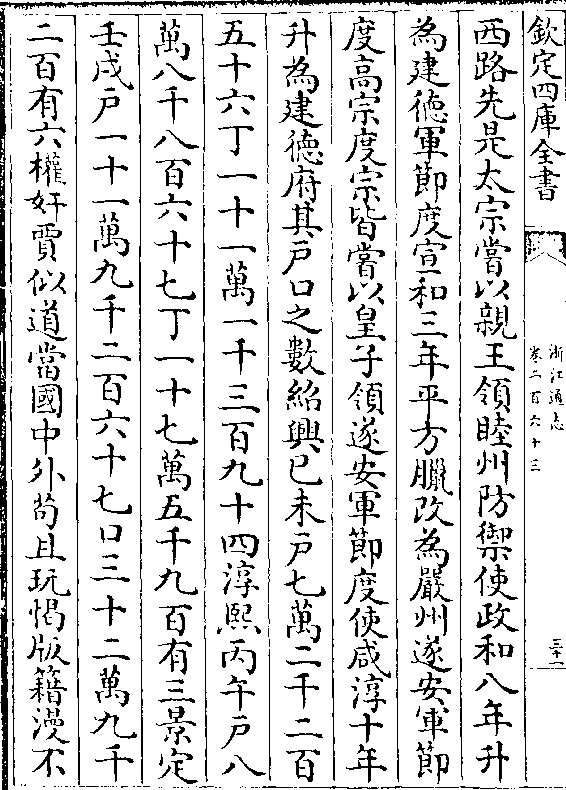 欽定四庫全書
浙江通志
卷二百六十三
三十一
西路先是太宗嘗以親王領睦州防禦使政和八年升
為建德軍節度宣和三年平方臘改為嚴州遂安軍節
度高宗度宗皆嘗以皇子領遂安軍節度使咸淳十年
升為建德府其戸口之數紹興已未戸七萬二千二百
五十六丁一十一萬一千三百九十四淳熙丙午戸八
萬八千八百六十七丁一十七萬五千九百有三景定
壬戌戸一十一萬九千二百六十七口三十二萬九千
二百有六權奸賈似道當國中外苟且玩愒版籍漫不